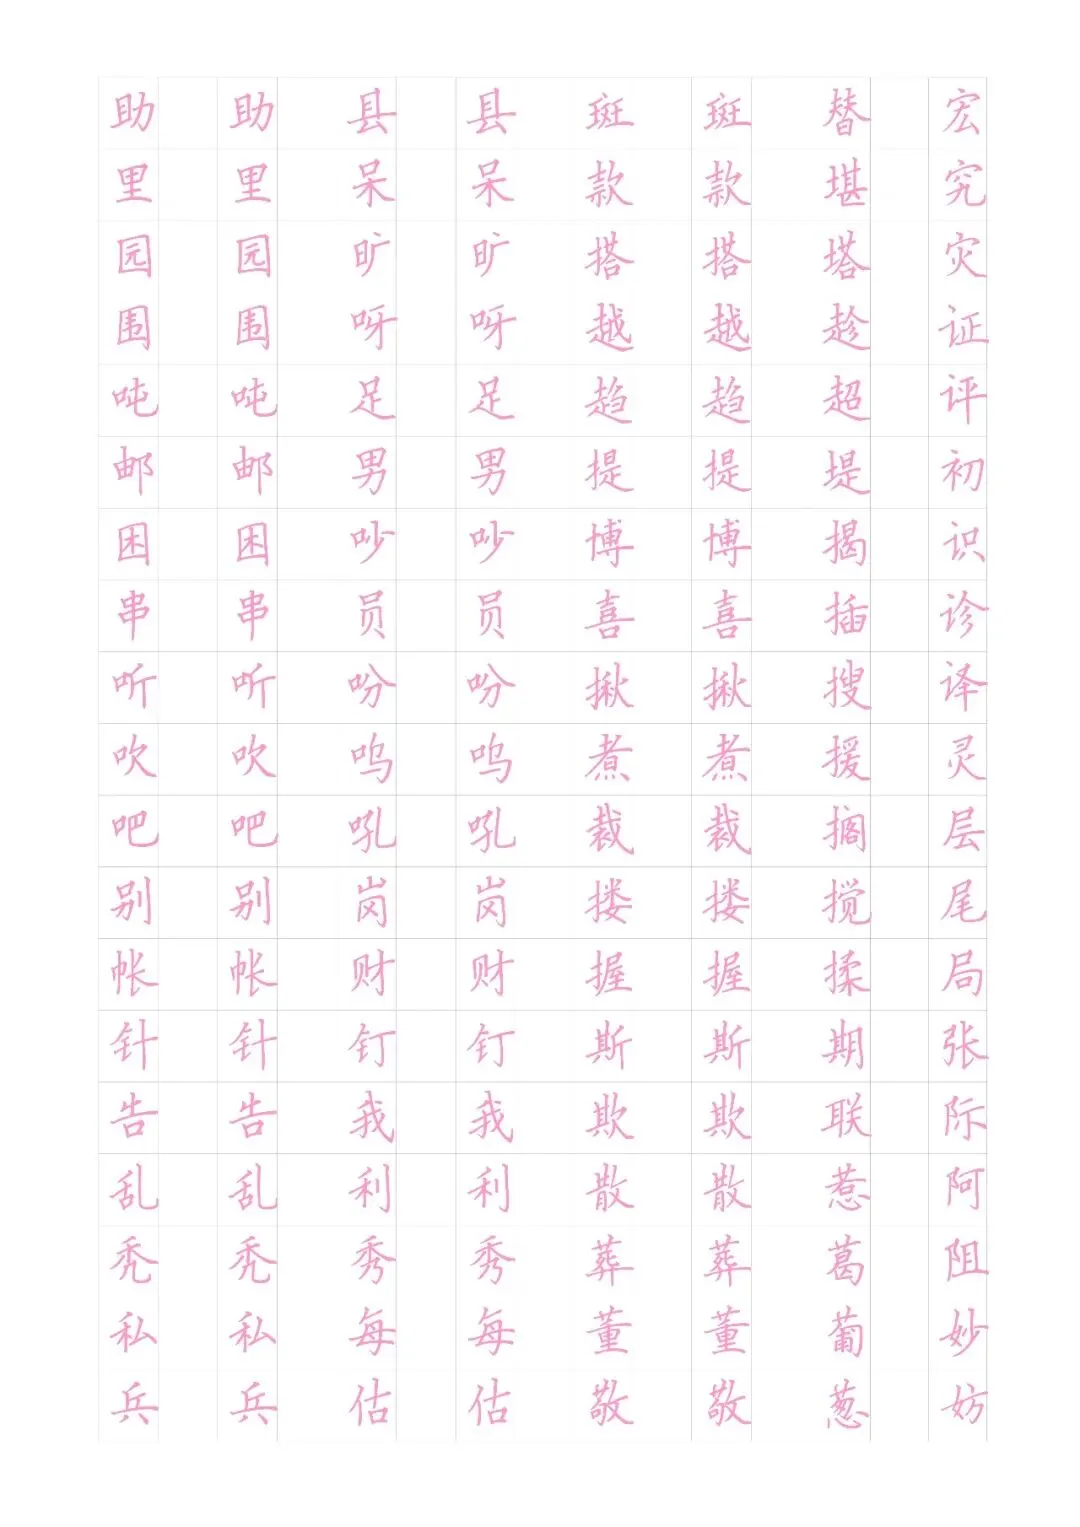 助 助 县 县 斑 斑 替 宏
里 里 呆 呆 款 款 堪 究
园 园 旷 旷 搭 搭 塔 灾
围 围 呀 呀 越 越 趁 证
吨 吨 足 足 趋 趋 超 评
邮 邮 男 男 提 提 堤 初
困 困 吵 吵 博 博 揭 识
串 串 员 员 喜 喜 插 诊
听 听 吩 吩 揪 揪 搜 译
吹 吹 呜 呜 煮 煮 援 灵
吧 吧 吼 吼 裁 裁 搁 层
别 别 岗 岗 搂 搂 搅 尾
帐 帐 财 财 握 握 揉 局
针 针 钉 钉 斯 斯 期 张
告 告 我 我 欺 欺 联 际
乱 乱 利 利 散 散 惹 阿
秃 秃 秀 秀 葬 葬 葛 阻
私 私 每 每 董 董 葡 妙
兵 兵 估 估 敬 敬 葱 妨